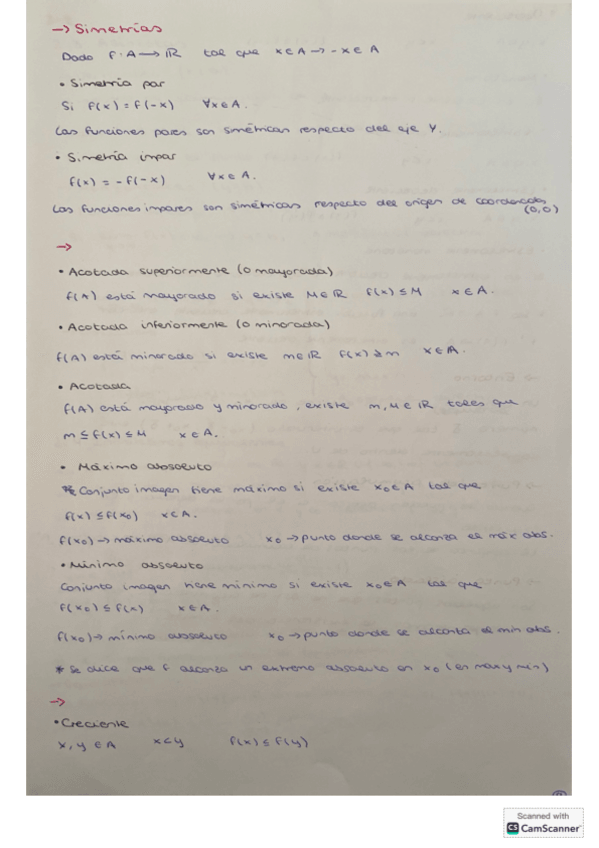 → Simetrías
Dado f: A → ℝ tal que x ∈ A → -x ∈ A
• Simetría par
Si f(x) = f(-x) ∀x ∈ A.
Las funciones pares son simétricas respecto del eje Y.
• Simetría impar
f(x) = -f(-x) ∀x ∈ A.
Las funciones impares son simétricas respecto del origen de coordenadas
(0,0)
→
• Acotada superiormente (o mayorada)
f(A) está mayorado si existe M ∈ ℝ f(x) ≤ M x ∈ A.
• Acotada inferiormente (o minorada)
f(A) está minorado si existe m ∈ ℝ f(x) ≥ m x ∈ A.
• Acotada
f(A) está mayorado y minorado, existe m, M ∈ ℝ tales que
m ≤ f(x) ≤ M x ∈ A.
• Máximo absoluto
Conjunto imagen tiene máximo si existe x₀ ∈ A tal que
f(x) ≤ f(x₀) x ∈ A.
f(x₀) → máximo absoluto x₀ → punto donde se alcanza el máx abs.
• Mínimo absoluto
Conjunto imagen tiene mínimo si existe x₀ ∈ A tal que
f(x₀) ≤ f(x) x ∈ A.
f(x₀) → mínimo absoluto x₀ → punto donde se alcanza el min abs.
* Se dice que f alcanza un extremo absoluto en x₀ (en max y min)
→
• Creciente
x, y ∈ A x < y f(x) ≤ f(y)
Scanned with
CS CamScanner